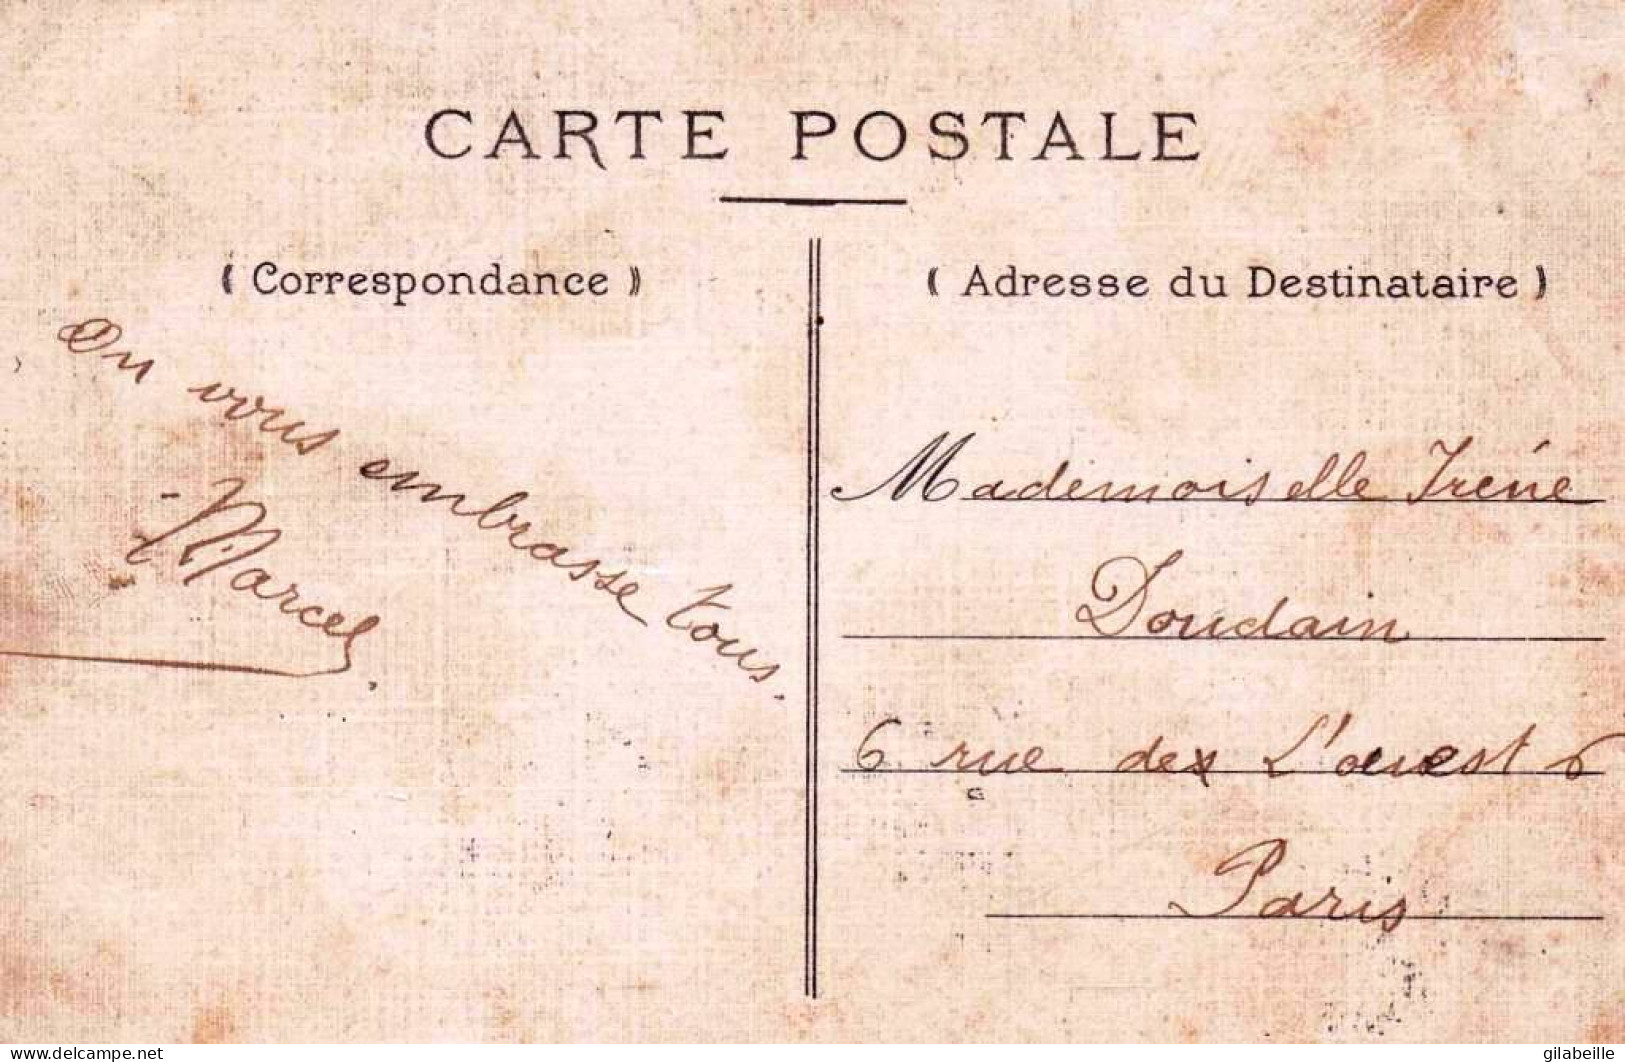 CARTE POSTALE
( Correspondance )
( Adresse du Destinataire )
On vous embrasse tous.
Marcel
Mademoiselle Irène
Doudain
6 rue de L'ouest 6
Paris
www.delcampe.net
gilabeille